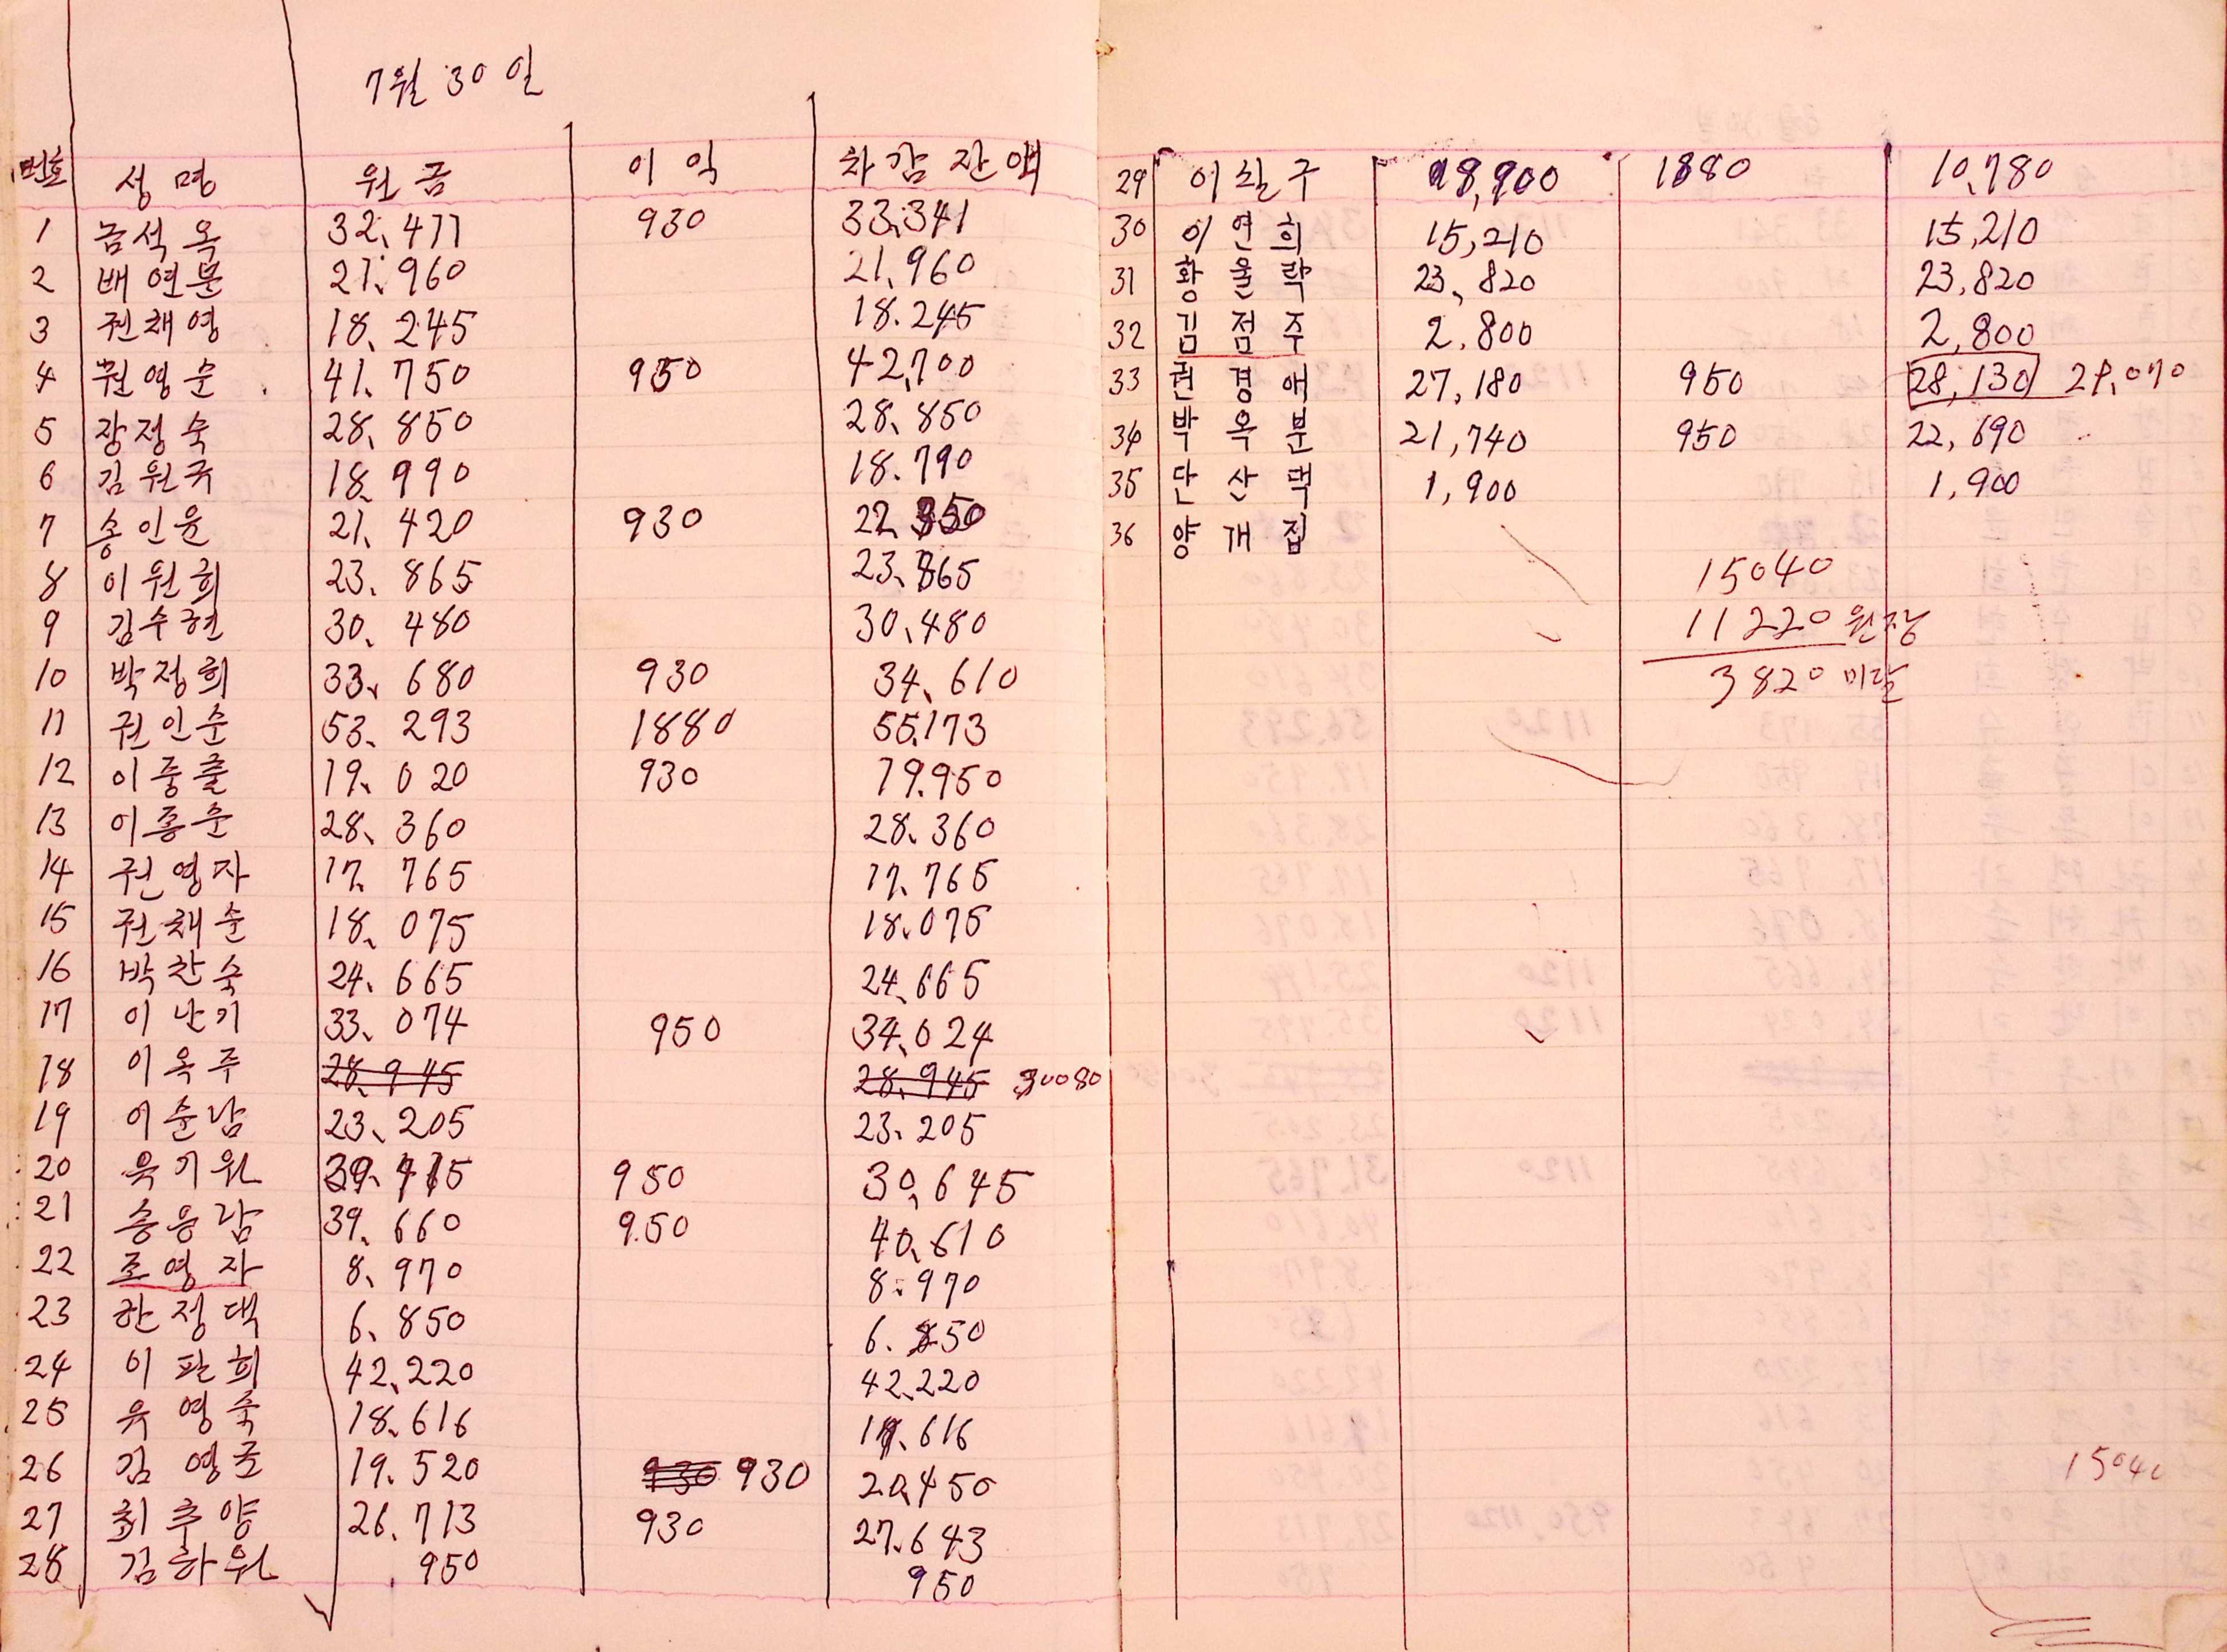 7월 30일
번호 성명 원금 이익 차감잔액
1 금석옥 32,411 930 33,341
2 배연분 21,960 21,960
3 권채영 18.245 18.245
4 권영순 41.750 950 42,700
5 장정숙 28,850 28,850
6 김원국 18,990 18.790
7 송인윤 21,420 930 22,350
8 이원희 23.865 23,865
9 김수현 30,480 30,480
10 박정희 33,680 930 34,610
11 권인순 53.293 1880 55,173
12 이중출 19.020 930 19.950
13 이종순 28,360 28.360
14 권영자 17.765 17.765
15 권채순 18,075 18.075
16 박찬숙 24.665 24,665
17 이난기 33,074 950 34,024
18 이옥주 28,945 28,945 30080
19 이순남 23,205 23.205
20 욱기원 950 30,645
21 송응남 39.660 950 40,610
22 조영자 8,970 8.970
23 한정댁 6,850 6.850
24 이판희 42,220 42,220
25 유영숙 18,616 616
26 김영근 19.520 930 930 20,450
27 최추양 26.713 930 27.643
28 김하원 950 950
29 이실구 900 1880 10,780
30 이연희 15,210 15,210
31 황울락 23,820 23,820
32 김점주 2,800 2,800
33 권경애 27,180 950 28,130 28,070
34 박옥분 21,740 950 22,690
35 단산댁 1,900 1,900
36 양개집
15040
11220 원장
3820 미달
15040